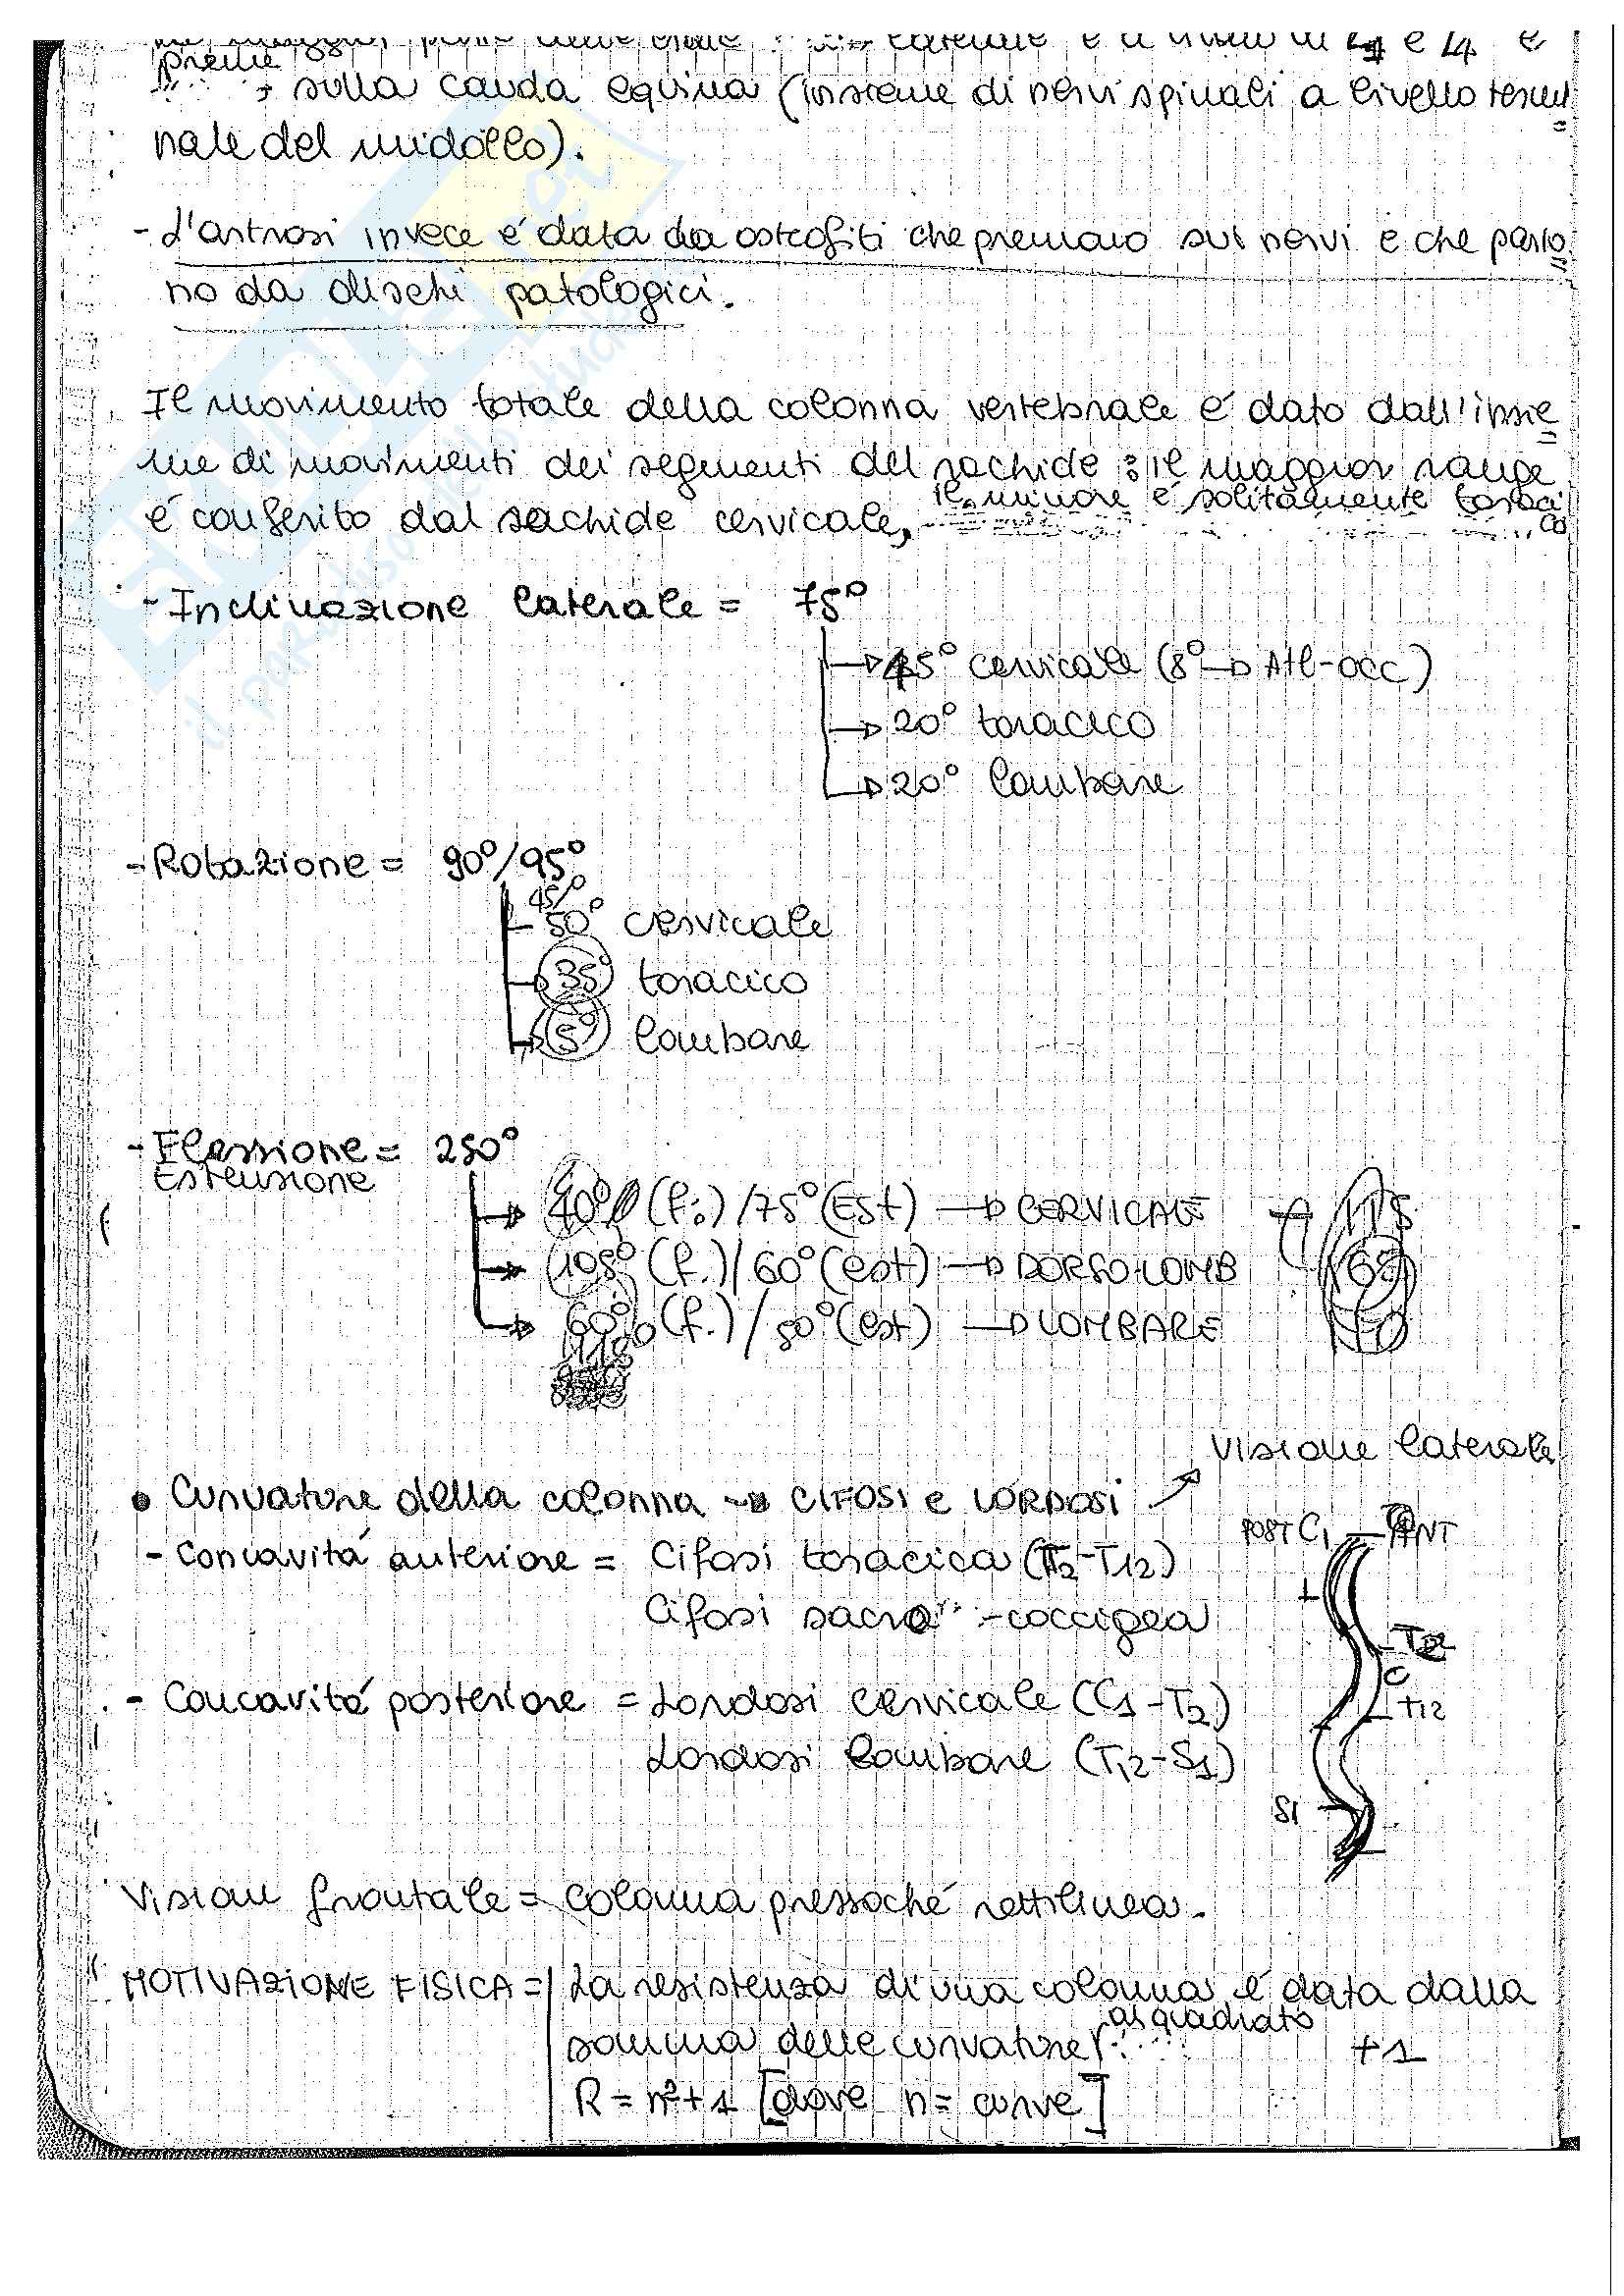 preme
sulla cauda equina (insieme di nervi spinali a livello termi
nale del midollo).
- L'artrosi invece é data da osteofiti che premono sui nervi e che parto
no da dischi patologici.
Il movimento totale della colonna vertebrale é dato dall'insie
me di movimenti dei segmenti del rachide : il maggior range
é conferito dal rachide cervicale, il minore é solitamente toraci
co
- Inclinazione laterale = 75°
→ 45° cervicale (8° → Atl-occ)
→ 20° toracico
→ 20° lombare
- Rotazione = 90°/95°
45/°
50° cervicale
→ 35° toracico
→ 5° lombare
- Flessione = 250°
Estensione
→ 40° (f.) /75° (Est) → CERVICALE 115
→ 105° (f.) / 60° (est) → DORSO-LOMB
→ 60° (f.) / 50° (est) → LOMBARE 110
110
Visione laterale
• Curvature della colonna → CIFOSI e LORDOSI
POST C1 ANT
- Concavitá anteriore = Cifosi toracica (T2-T12)
Cifosi sacro-coccigea
T2
C
- Concavitá posteriore = Lordosi cervicale (C1-T2)
T12
Lordosi lombare (T12-S1)
S1
Vision frontale = colonna pressoché rettilinea.
MOTIVAZIONE FISICA = La resistenza di una colonna é data dalla
somma delle curvature al quadrato +1
R = n²+1 [dove n = curve]